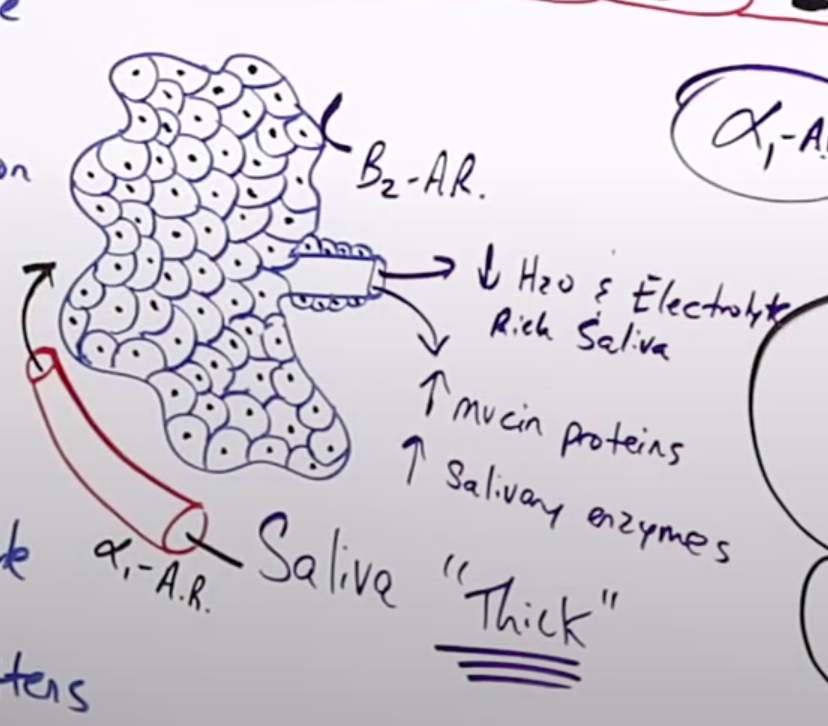 e
α₁-A.
on
B₂-A.R.
↓ H₂O & Electrolyte
Rich Saliva
↑ mucin proteins
↑ Salivary enzymes
α₁-A.R.
Saliva "Thick"
te
ters